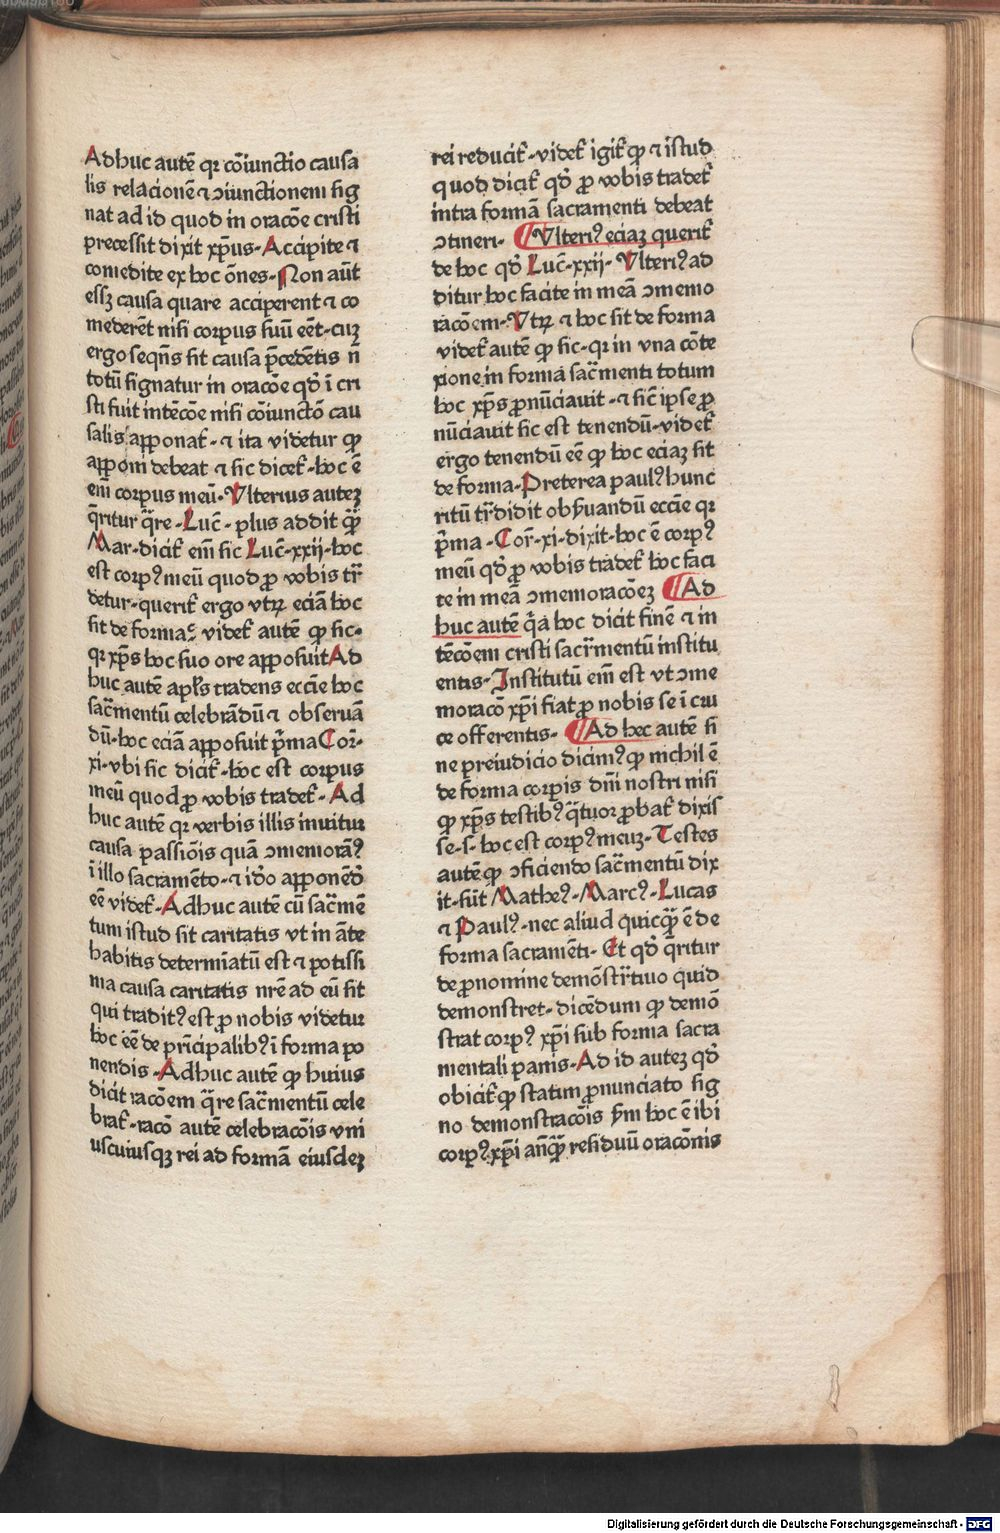 Adhuc autē qꝛ cōiunctio causa
lis relacionē ⁊ ↄiunctionem sig
nat ad id quod in oracōe cristi
precessit dixit xp̄us· Accipite ⁊
comedite ex hoc ōnes· Non aūt
essꝫ causa quare acciperent ⁊ co
mederēt nisi corpus suū eēt· cuꝫ
ergo seqn̄s sit causa p̄cedētis n̄
totū signatur in oracōe qd̓ ī cri
sti fuit intēcōe nisi cōiunctō cau
salis apponat᷑· ⁊ ita videtur ꝙ
apponi debeat ⁊ sic dicet᷑· hoc ē
em̄ corpus meū· Vlterius auteꝫ
q̄ritur q̄re· Luc̄· plus addit qᷓꝫ
Mar· dicit᷑ em̄ sic Luc̄· xxij· hoc
est corpꝰ meū quod ꝓ vobis tr̄
detur· querit᷑ ergo vtꝝ eciā hoc
sit de forma· videt᷑ autē ꝙ sic·
qꝛ xp̄s hoc suo ore apposuit Ad
huc autē apl̄s tradens eccīe hoc
sac̄mentū celebrādū ⁊ obseruā
dū· hoc eciā apposuit p̄ma Cor̄·
xi· vbi sic dicit᷑· hoc est corpus
meū quod ꝓ vobis tradet᷑· Ad
huc autē qꝛ verbis illis inuitur
causa passiōis quā ↄmemoraꝰ
ī illo sacramēto· ⁊ id̓o apponēd̓
eē videt᷑· Adhuc autē cū sac̄mē
tum istud sit caritatis vt in āte
habitis determīatū est ⁊ potissi
ma causa caritatis nr̄e ad eū sit
qui traditꝰ est ꝓ nobis videtur
hoc eē de pn̄cipalibꝰ ī forma po
nendis· Adhuc autē ꝙ huius
dicit racōem q̄re sac̄mentū cele
brat᷑· racō autē celebracōis vni
uscuiusqꝫ rei ad formā eiusdeꝫ
rei reducit᷑· videt᷑ igit᷑ ꝙ ⁊ istud
quod dicit᷑ qd̓ ꝓ vobis tradet᷑
intra formā sacramenti debeat
ↄtineri· ¶ Vlteriꝰ eciaꝫ querit᷑
de hoc qd̓ Luc̄· xxij· Vlteriꝰ ad
ditur hoc facite in meā ↄmemo
racōem· Vtꝝ ⁊ hoc sit de forma
videt᷑ autē ꝙ sic· qꝛ in vna cōte
xione in forma sac̄menti totum
hoc xp̄s ꝓnūciauit· ⁊ sic̄ ipse ꝓ
nūciauit sic est tenendū· videt᷑
ergo tenendū eē ꝙ hoc eciaꝫ sit
de forma· Preterea paulꝰ hunc
ritū tr̄didit obẜuandū eccīe qꝛ
p̄ma· Cor̄· xi· dixit· hoc ē corpꝰ
meū qd̓ ꝓ vobis tradet᷑ hoc faci
te in meā ↄmemoracōeꝫ ¶ Ad
huc autē q̄a hoc dicit finē ⁊ in
tēcōem cristi sacr̄mentū institu
entis· Institutū em̄ est vt ↄme
moracō xp̄i fiat ꝓ nobis se ī cru
ce offerentis· ¶ Ad hec autē si
ne preiudicio dicimꝰ ꝙ nichil ē
de forma corpis dm̄i nostri nisi
ꝙ xp̄s testibꝰ q̄tuor ꝓbat᷑ dixis
se· s· hoc est corpꝰ meuꝫ· Testes
autē ꝙ ↄficiendo sac̄mentū dix
it· sūt Matheꝰ· Marcꝰ· Lucas
⁊ Paulꝰ· nec aliud quicqᷓꝫ ē de
forma sacramēti· Et qd̓ q̄ritur
de ꝓnomine demōstr̄tiuo quid
demonstret· dicēdum ꝙ demō
strat corpꝰ xp̄i sub forma sacra
mentali panis· Ad id auteꝫ qd̓
obicit᷑ ꝙ statim ꝓnunciato sig
no demonstracōis ẜm hoc ē ibi
corpꝰ xp̄i an̄qᷓꝫ residuū oracōnis
Digitalisierung gefördert durch die Deutsche Forschungsgemeinschaft - DFG